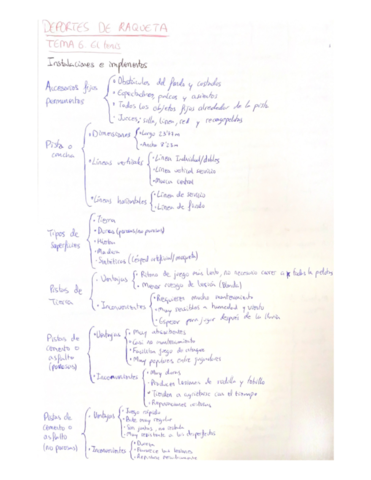 DEPORTES DE RAQUETA
TEMA 6. El tenis
Instalaciones e implementos
Accesorios fijos permanentes
• Obstáculos del fondo y costados
• Espectadores, palcos y asientos
• Todos los objetos fijos alrededor de la pista
• Jueces, silla, línea, red y recogepelotas
Pista o cancha
• Dimensiones
• Largo 23'77m
• Ancho 8'23m
• Líneas verticales
• Línea individual/dobles
• Línea vertical servicio
• Marca central
• Líneas horizontales
• Línea de servicio
• Línea de fondo
Tipos de superficies
• Tierra
• Duras (porosas/no porosas)
• Hierba
• Madera
• Sintéticas (césped artificial/moqueta)
Pistas de Tierra
• Ventajas
• Ritmo de juego más lento, no necesario correr a todas la pelotas
• Menor riesgo de lesión (blanda)
• Inconvenientes
• Requieren mucho mantenimiento
• Muy sensibles a humedad y viento
• Esperar para jugar después de la lluvia
Pistas de cemento o asfalto (porosas)
• Ventajas
• Muy
• Casi no mantenimiento
• Facilitan juego de ataque
• Muy populares entre jugadores
• Inconvenientes
• Muy duras
• Producen lesiones de rodilla y tobillo
• Tienden a agrietarse con el tiempo
• Reparaciones costosas
Pistas de cemento o asfalto (no porosas)
• Ventajas
• Juego rápido
• Bote muy regular
• Muy resistente a los desperfectos
• Inconvenientes
• Dureza